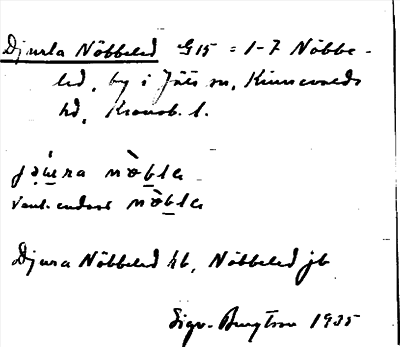 Djurla Nöbbeled G15 = 1-7 Nöbbe-
led, by i Jäts sn, Kinnevalds
hd, Kronob. l.
nò̀bla
vanl. endast nò̀bla
Djura Nöbbeled hb, Nöbbeled jb
Sigv. Bengtson 1935